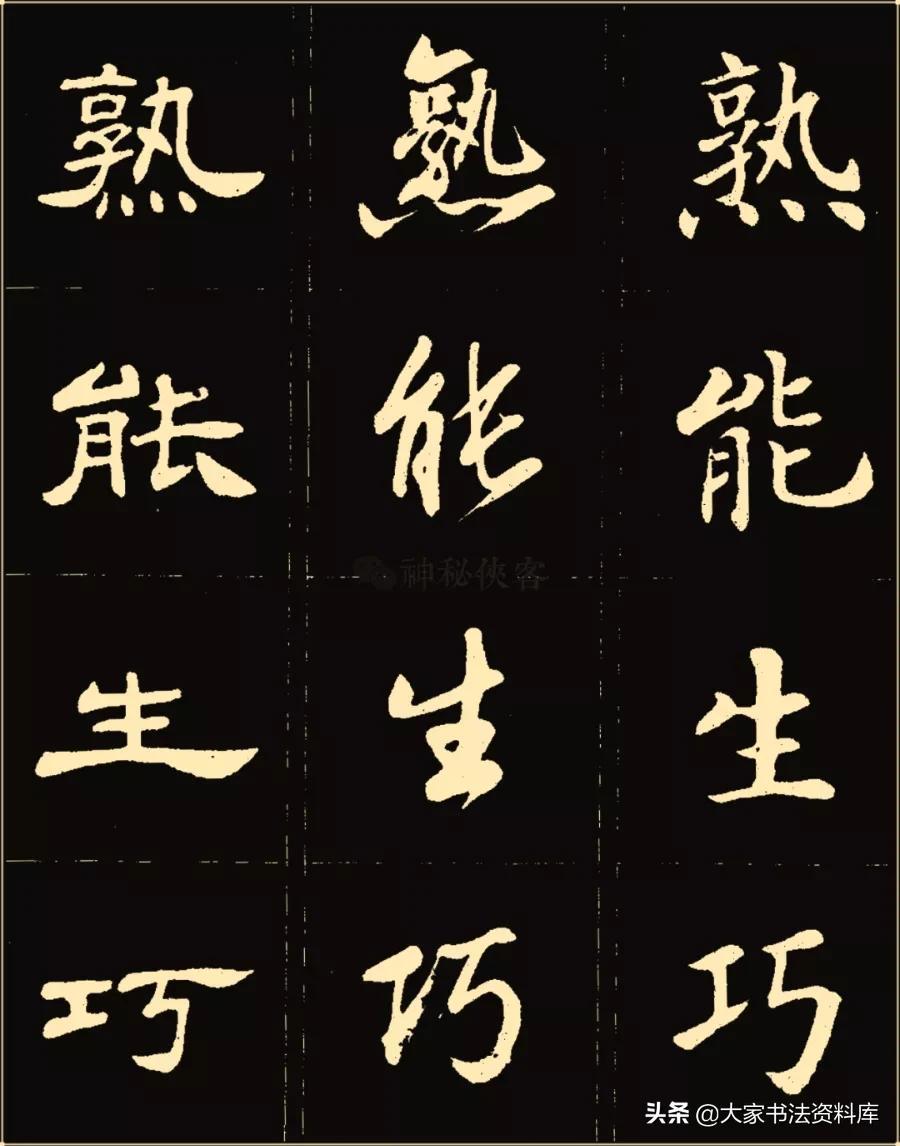 熟能生巧
熟能生巧
熟能生巧
神秘俠客
头条 @大家书法资料库